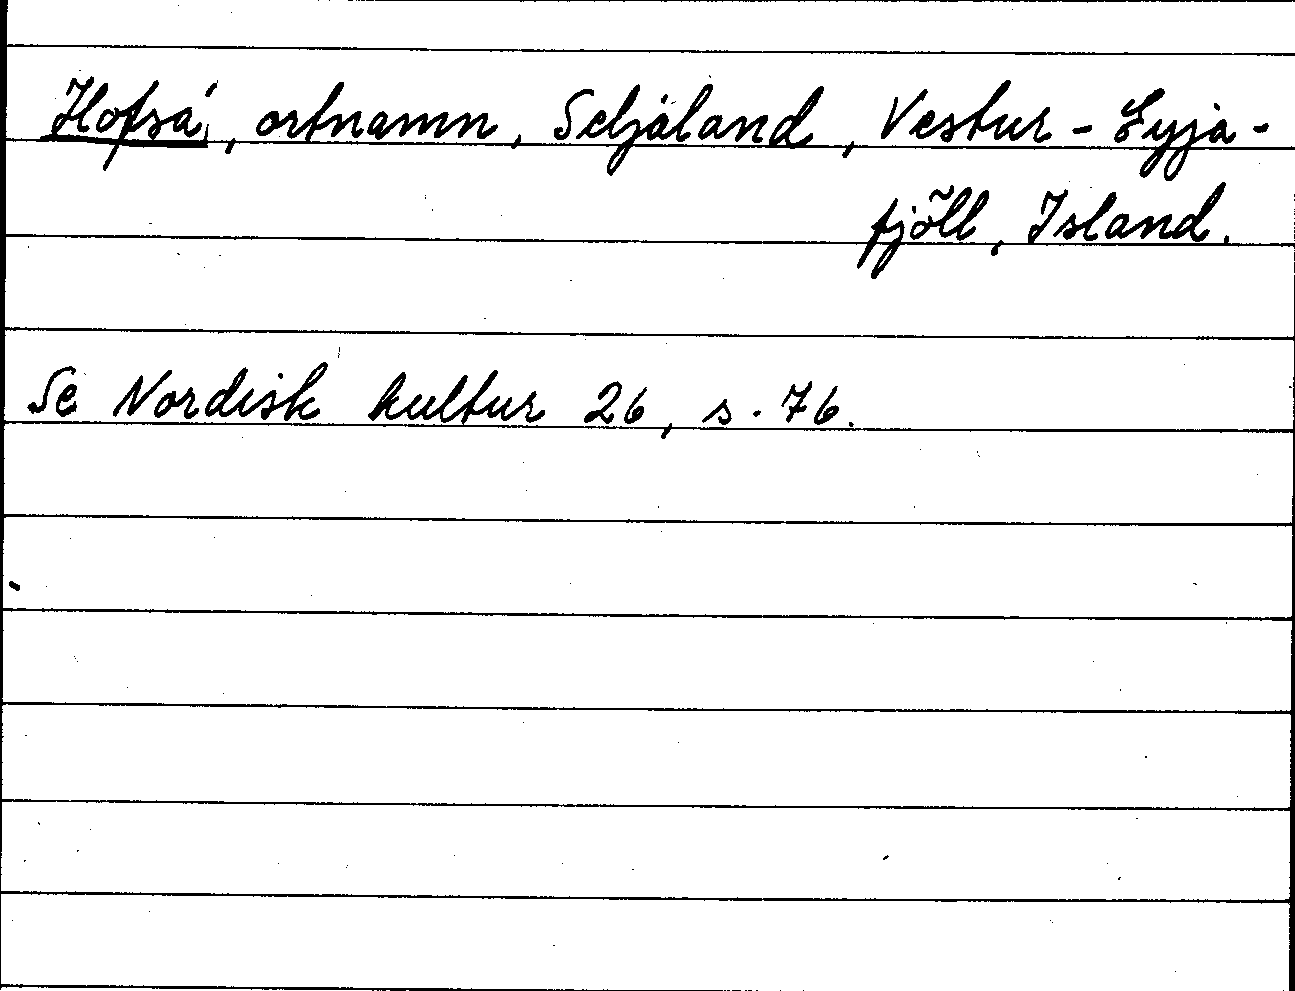 Hofsá, ortnamn, Seljaland, Vestur-Eyja-
fjöll, Island.
Se Nordisk kultur 26, s. 76.